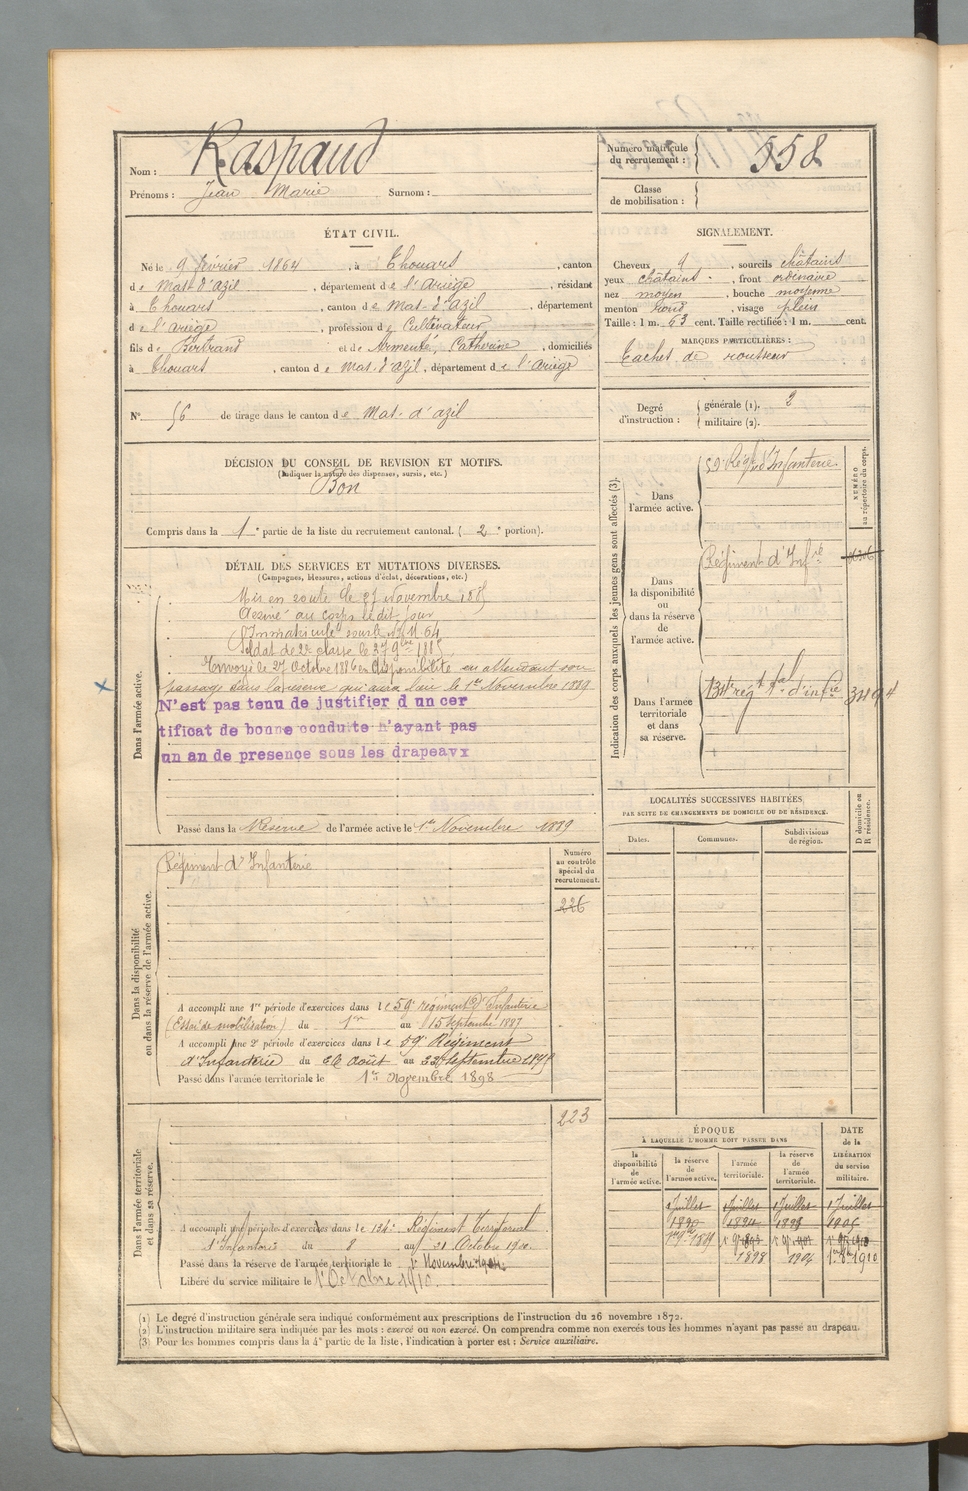 Nom : Raspaud
Prénoms : Jean Marie Surnom :
Numéro matricule du recrutement : 558
Classe de mobilisation :
ÉTAT CIVIL.
Né le 9 février 1864, à Thouars, canton
de Mas-d'azil, département de l'Ariège, résidant
à Thouars, canton de Mas-d'azil, département
de l'ariège, profession de Cultivateur
fils de Bertrand et de Armenté, Catherine, domiciliés
à Thouars, canton de Mas-d'azil, département de l'ariège
SIGNALEMENT.
Cheveux, sourcils châtains
yeux châtains, front ordinaire
nez moyen, bouche moyenne
menton rond, visage plein
Taille : 1 m. 63 cent. Taille rectifiée : 1 m. cent.
MARQUES PARTICULIÈRES :
Taches de rousseur
N° 56 de tirage dans le canton de Mas-d'azil
Degré d'instruction : générale (1). 2
militaire (2).
DÉCISION DU CONSEIL DE REVISION ET MOTIFS.
(Indiquer la nature des dispenses, sursis, etc.)
Bon
Compris dans la 1e partie de la liste du recrutement cantonal. ( 2e portion).
DÉTAIL DES SERVICES ET MUTATIONS DIVERSES.
(Campagnes, blessures, actions d'éclat, décorations, etc.)
Dans l'armée active.
Mis en route le 27 Novembre 1885
Arrivé au corps le dit jour
Immatriculé sous le N°
Soldat de 2e classe le 27 9bre 1885
Envoyé le 27 Octobre 1886 en disponibilité en attendant son
passage dans la réserve qui aura lieu le 1er Novembre 1889
N'est pas tenu de justifier d un cer
tificat de bonne conduite n'ayant pas
un an de presence sous les drapeavx
Passé dans la Réserve de l'armée active le 1er Novembre 1889
Indication des corps auxquels les jeunes gens sont affectés (3).
NUMÉRO au répertoire du corps.
Dans l'armée active.
59e Régt d'Infanterie
Dans la disponibilité ou dans la réserve de l'armée active.
Régiment d'Infrie
Dans l'armée territoriale et dans sa réserve.
134e régt tal d'infie
LOCALITÉS SUCCESSIVES HABITÉES
PAR SUITE DE CHANGEMENTS DE DOMICILE OU DE RÉSIDENCE.
D domicile ou R résidence.
Dates. Communes. Subdivisions de région.
Dans la disponibilité ou dans la réserve de l'armée active.
Régiment d'Infanterie
Numéro au contrôle spécial du recrutement.
226
A accompli une 1re période d'exercices dans le 59e régiment d'Infanterie
(Essai de mobilisation) du 1er au 15 Septembre 1887
A accompli une 2e période d'exercices dans le 59e Régiment
d'Infanterie du 26 Août au 22 Septembre
Passé dans l'armée territoriale le 1er Novembre 1898
Dans l'armée territoriale et dans sa réserve.
223
A accompli une période d'exercices dans le 134e Régiment Territorial
d'Infanterie du 8 au 21 Octobre
Passé dans la réserve de l'armée territoriale le 1er Novembre 1904
Libéré du service militaire le 1er Octobre 1910.
ÉPOQUE
À LAQUELLE L'HOMME DOIT PASSER DANS
la disponibilité de l'armée active.
la réserve de l'armée active.
l'armée territoriale.
la réserve de l'armée territoriale.
DATE de la LIBÉRATION du service militaire.
1 Juillet 1 Juillet 1 Juillet 1 Juillet
1890 1905
1898 1904 1910
(1) Le degré d'instruction générale sera indiqué conformément aux prescriptions de l'instruction du 26 novembre 1872.
(2) L'instruction militaire sera indiquée par les mots : exercé ou non exercé. On comprendra comme non exercés tous les hommes n'ayant pas passé au drapeau.
(3) Pour les hommes compris dans la 4e partie de la liste, l'indication à porter est : Service auxiliaire.